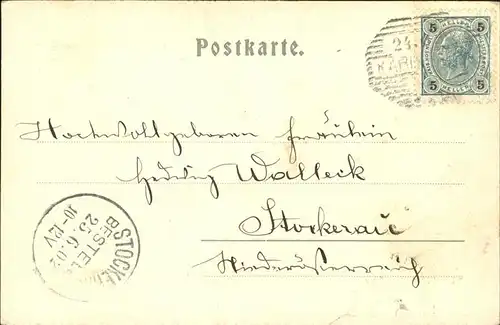 Postkarte.
24.
5 5
HELLER
5 5
Hochwohlgeboren Fräulein
Hedwig Walleck
Stockerau
Niederösterreich
BESTELLT
25.6.02
10-12V